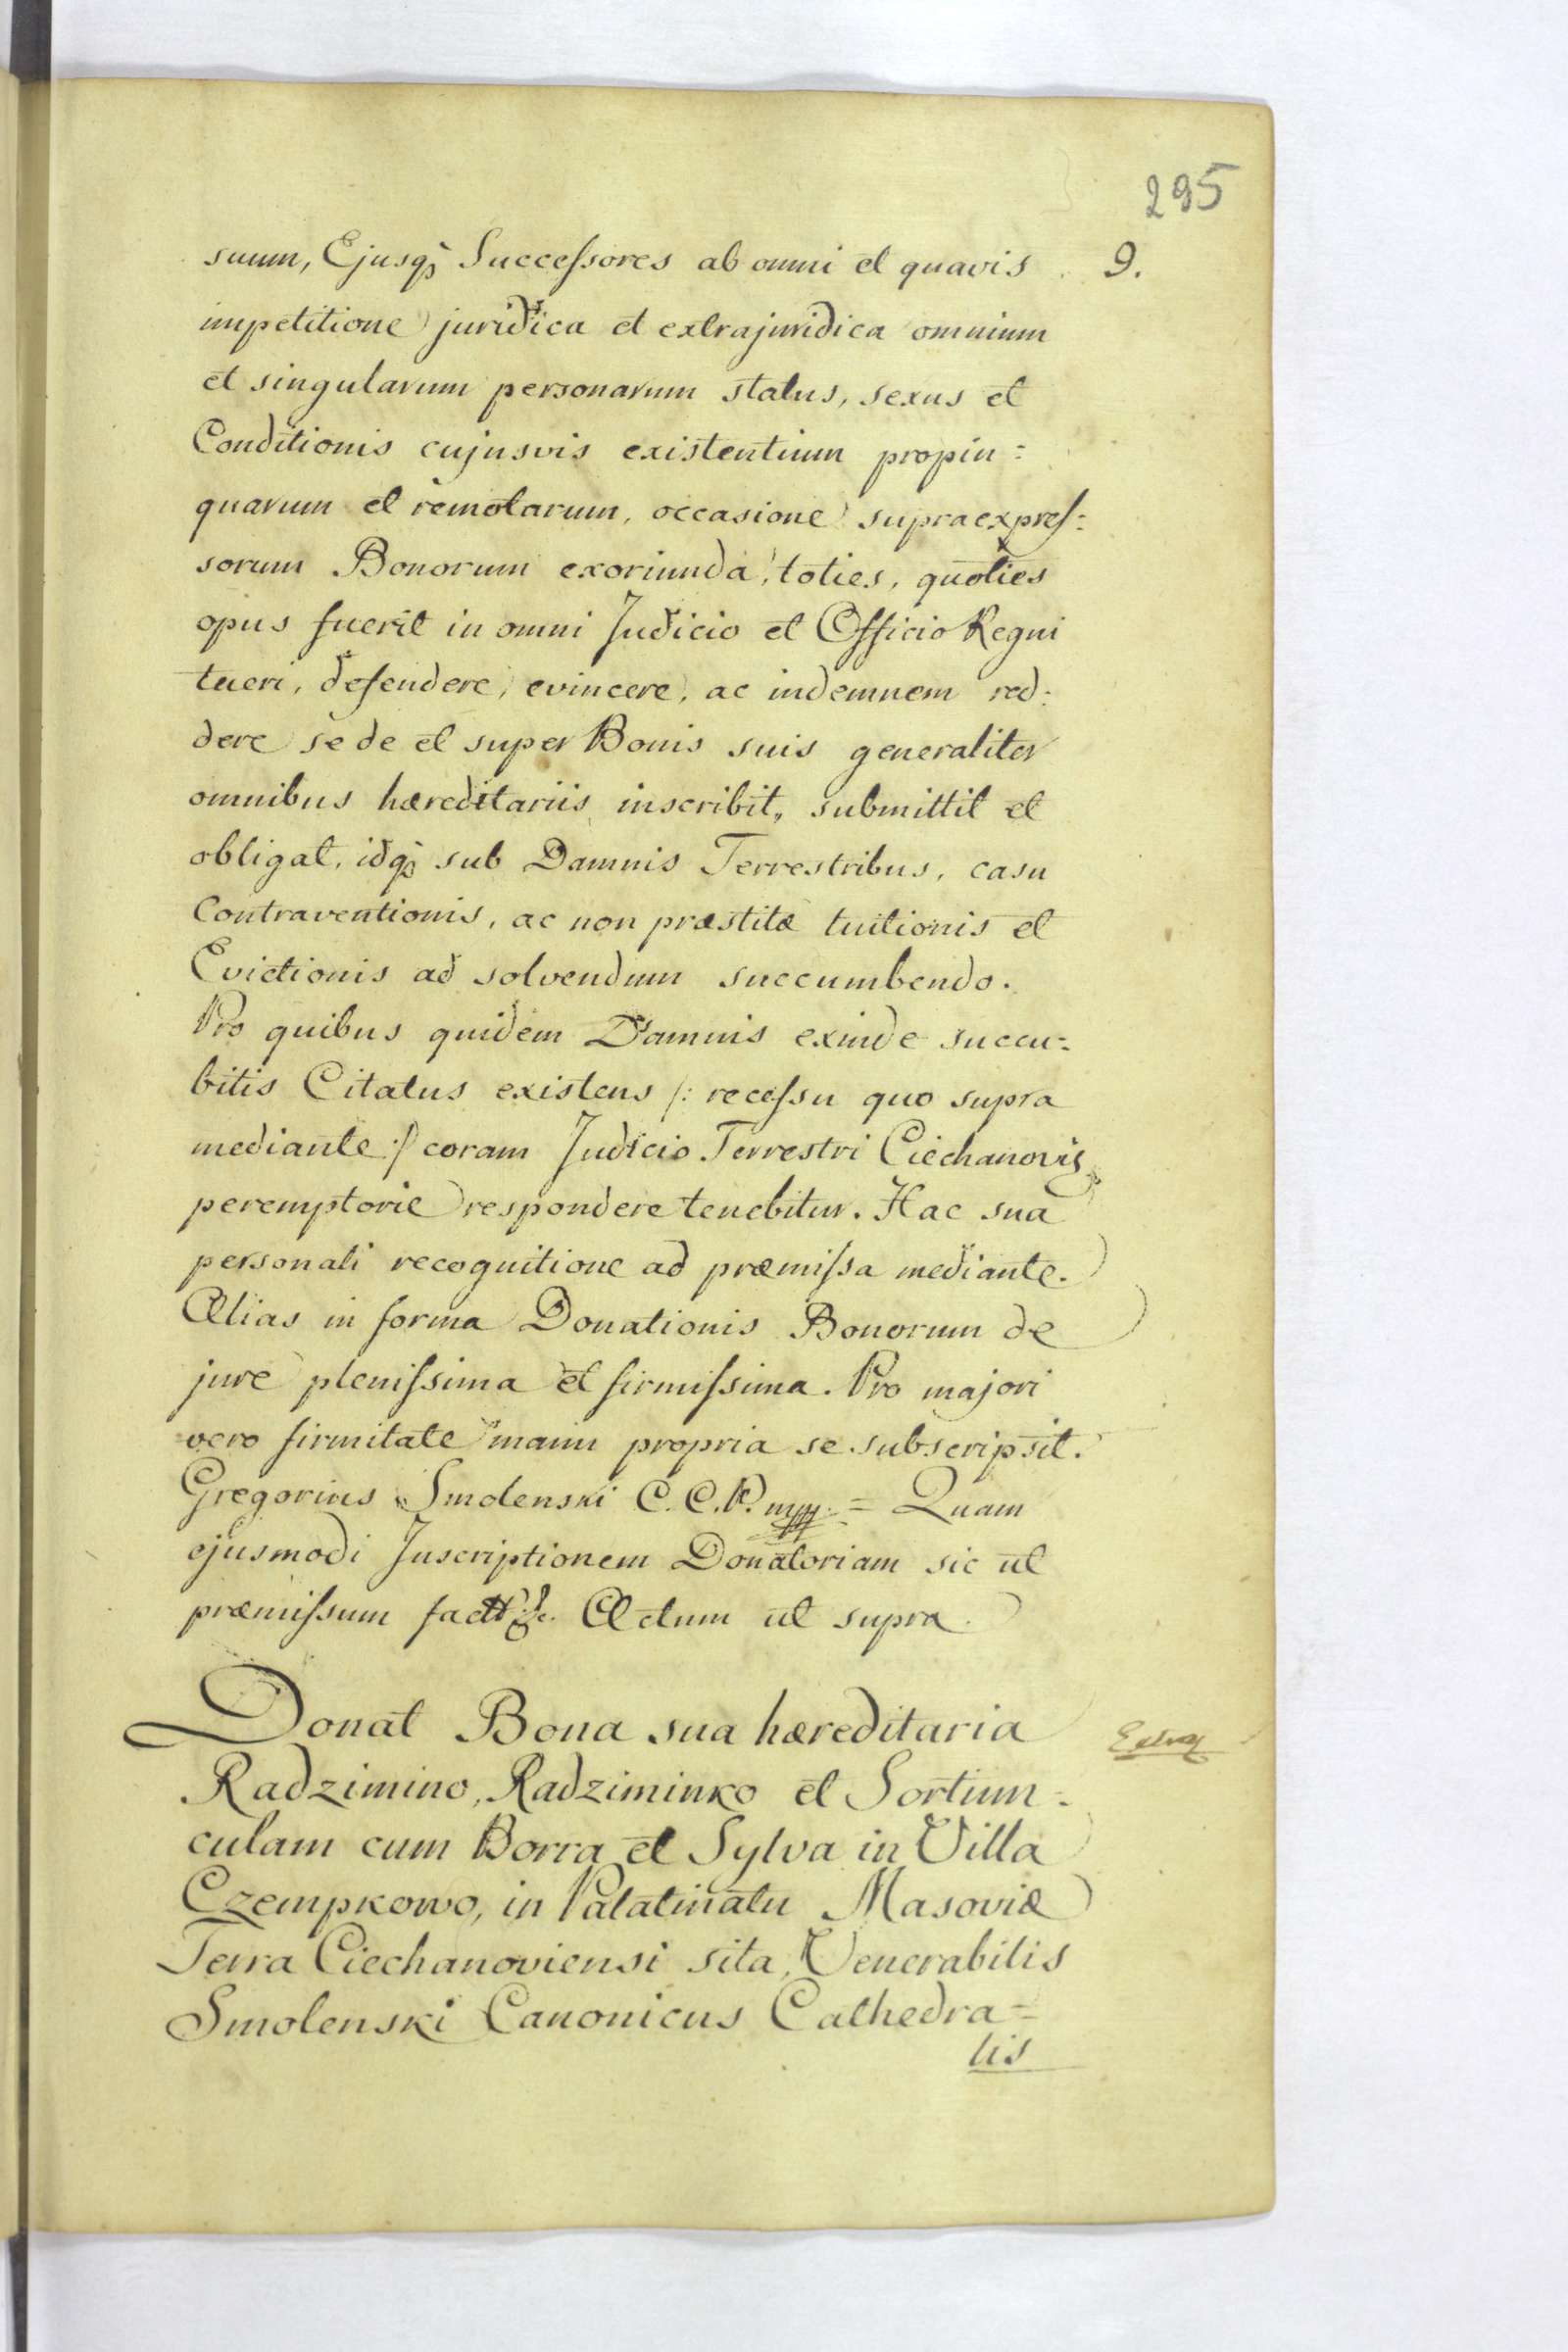 295
suum, Ejusq3 Succeſsores ab omni et quavis 9.
impetitione juridica et extrajuridica omnium
et singularum personarum status, sexus et
Conditionis cujusvis existentium propin=
quarum et remotarum, occasione supraexpreſ=
sorum Bonorum exoriunda, toties, quoties
opus fuerit in omni Judicio et Officio Regni
tueri, defendere, evincere, ac indemnem red=
dere se de et super Bonis suis generaliter
omnibus hæreditariis inscribit, submittit et
obligat, idq3 sub Damnis Terrestribus, casu
Contraventionis, ac non præstitæ tuitionis et
Evictionis ad solvendum succumbendo.
Pro quibus quidem Damnis exinde succu=
bitis Citatus existens /: receſsu quo supra
mediante :/ coram Judicio Terrestri Ciechanovis
peremptorie respondere tenebitur. Hac sua
personali recognitione ad præmiſsa mediante.
Alias in forma Donationis Bonorum de
jure pleniſsima et firmiſsima. Pro majori
vero firmitate manu propria se subscripsit.
Gregorius Smolenski C. C. P. mpp. = Quam
ejusmodi Inscriptionem Donatoriam sic ut
præmiſsum factt &c. Actum ut supra.
Donat Bona sua hæreditaria
Radzimino, Radziminko et Sortiun=
culam cum Borra et Sylva in Villa
Czempkowo, in Palatinatu Masoviæ
Terra Ciechanoviensi sita, Venerabilis
Smolenski Canonicus Cathedra=
lis